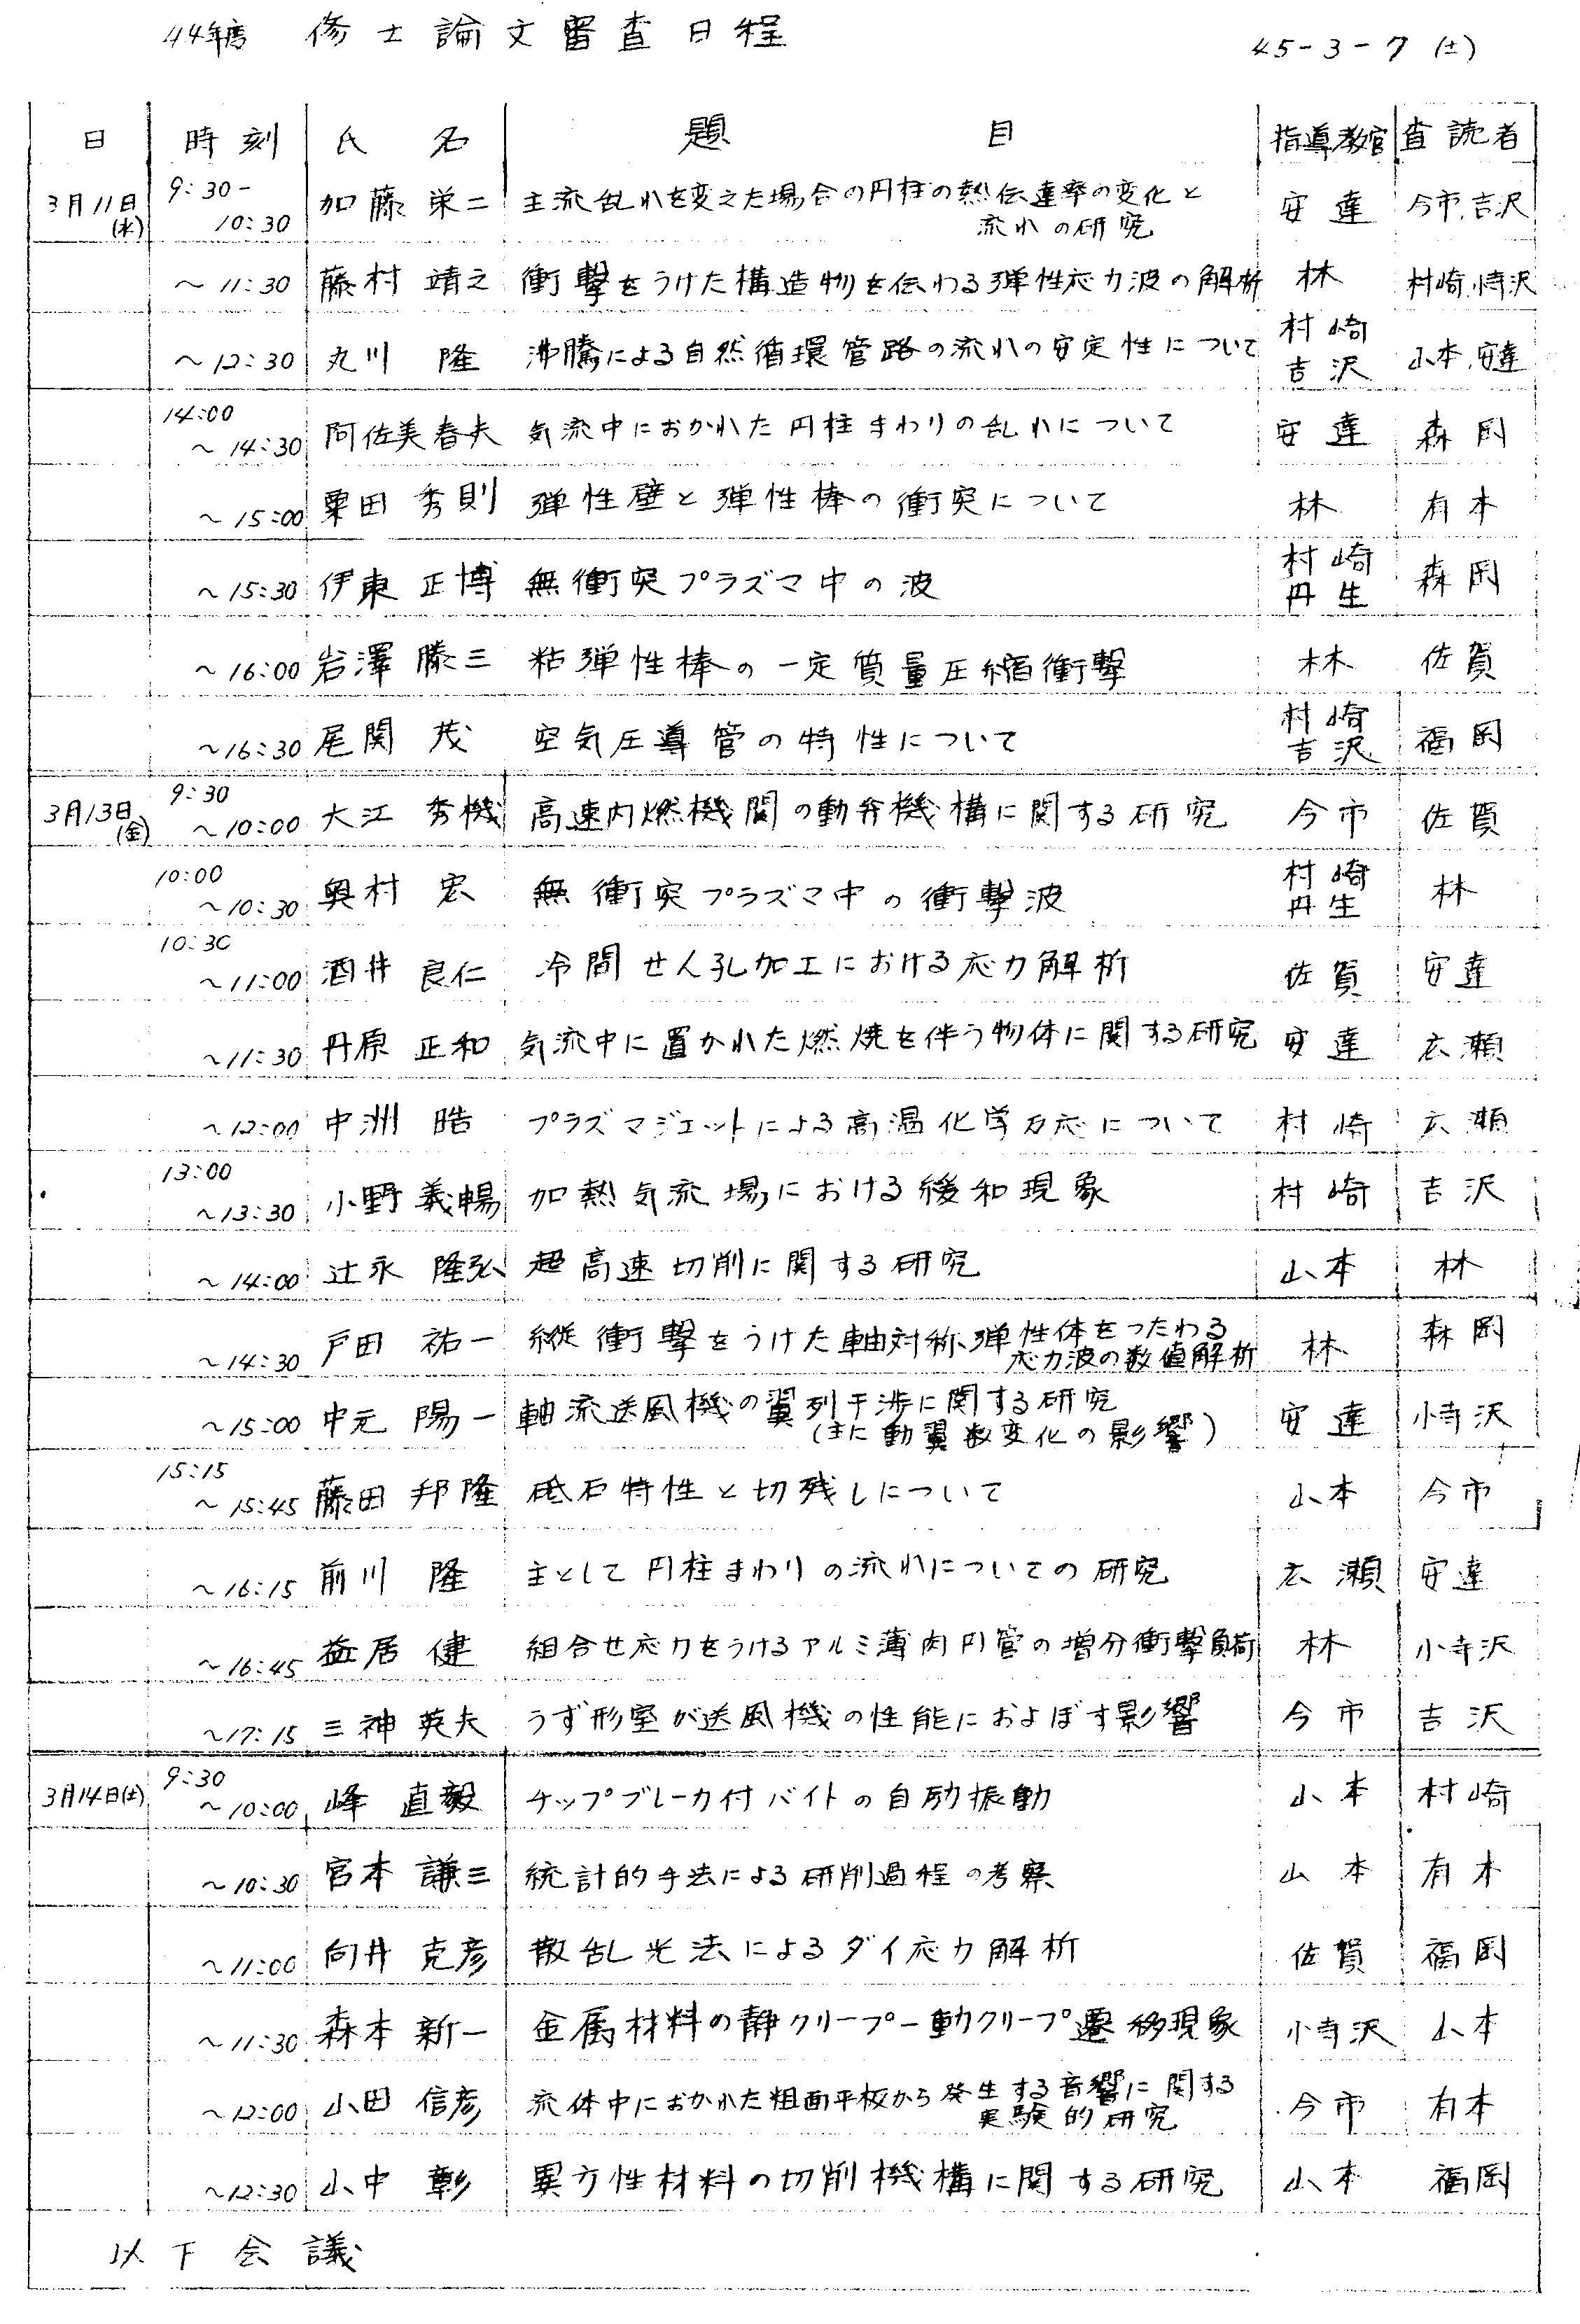 44年度 修士論文審査日程 45-3-7 (土)
日 時刻 氏名 題目 指導教官 査読者
3月11日(水) 9:30-10:30 加藤 栄二 主流乱れを変えた場合の円柱の熱伝達率の変化と 安達 今市,吉沢
流れの研究
～11:30 藤村 靖之 衝撃をうけた構造物を伝わる弾性応力波の解析 林 村崎,小寺沢
～12:30 丸川 隆 沸騰による自然循環管路の流れの安定性について 村崎 吉沢 山本,安達
14:00～14:30 阿佐美春夫 気流中におかれた円柱まわりの乱れについて 安達 森岡
～15:00 粟田 秀則 弾性壁と弾性棒の衝突について 林 有本
～15:30 伊東 正博 無衝突プラズマ中の波 村崎 丹生 森岡
～16:00 岩澤 勝三 粘弾性棒の一定質量圧縮衝撃 林 佐賀
～16:30 尾関 茂 空気圧導管の特性について 村崎 吉沢 福岡
3月13日(金) 9:30～10:00 大江 秀機 高速内燃機関の動弁機構に関する研究 今市 佐賀
10:00～10:30 奥村 宏 無衝突プラズマ中の衝撃波 村崎 丹生 林
10:30～11:00 酒井 良仁 冷間せん孔加工における応力解析 佐賀 安達
～11:30 丹原 正和 気流中に置かれた燃焼を伴う物体に関する研究 安達 広瀬
～12:00 中洲 晧 プラズマジェットによる高温化学反応について 村崎 広瀬
13:00～13:30 小野 義暢 加熱気流場における緩和現象 村崎 吉沢
～14:00 辻永 隆弘 超高速切削に関する研究 山本 林
～14:30 戸田 祐一 縦衝撃をうけた軸対称弾性体をつたわる 林 森岡
応力波の数値解析
～15:00 中元 陽一 軸流送風機の翼列干渉に関する研究 安達 小寺沢
(主に動翼数変化の影響)
15:15～15:45 藤田 邦隆 砥石特性と切残しについて 山本 今市
～16:15 前川 隆 主として円柱まわりの流れについての研究 広瀬 安達
～16:45 益居 健 組合せ応力をうけるアルミ薄肉円管の増分衝撃負荷 林 小寺沢
～17:15 三神 英夫 うず形室が送風機の性能におよぼす影響 今市 吉沢
3月14日(土) 9:30～10:00 峰 直毅 チップブレーカ付バイトの自励振動 山本 村崎
～10:30 宮本 謙三 統計的手法による研削過程の考察 山本 有本
～11:00 向井 克彦 散乱光法によるダイ応力解析 佐賀 福岡
～11:30 森本 新一 金属材料の静クリープー動クリープ遷移現象 小寺沢 山本
～12:00 山田 信彦 流体中におかれた粗面平板から発生する音響に関する 今市 有本
実験的研究
～12:30 山中 彰 異方性材料の切削機構に関する研究 山本 福岡
以下会議